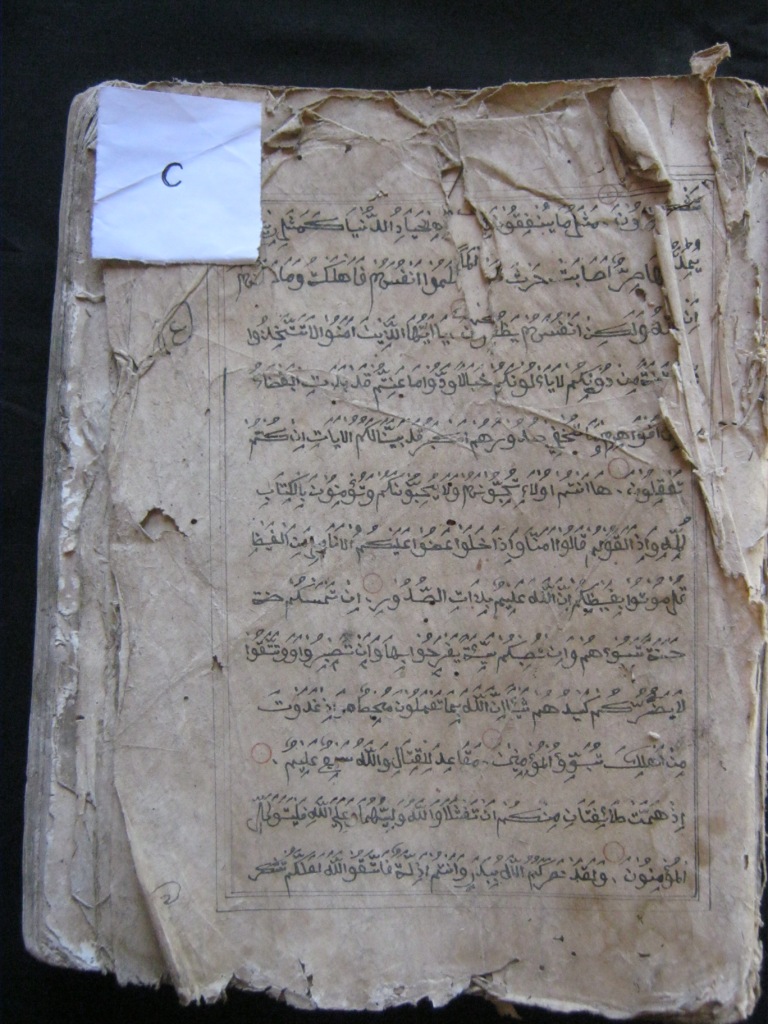 C
مَثَلُ مَا يُنْفِقُونَ الدُّنْيَا كَمَثَلِ رِيحٍ
صِرٌّ أَصَابَتْ حَرْثَ ظَلَمُوا أَنْفُسَهُمْ فَأَهْلَكَتْهُ وَمَا ظَلَمَهُمُ
وَلَكِنْ أَنْفُسَهُمْ يَظْلِمُونَ يَا أَيُّهَا الَّذِينَ آمَنُوا لَا تَتَّخِذُوا
مِنْ دُونِكُمْ لَا يَأْلُونَكُمْ خَبَالًا وَدُّوا مَا عَنِتُّمْ قَدْ بَدَتِ الْبَغْضَاءُ
أَفْوَاهِهِمْ تُخْفِي صُدُورُهُمْ أَكْبَرُ قَدْ بَيَّنَّا لَكُمُ الْآيَاتِ إِنْ كُنْتُمْ
تَعْقِلُونَ هَا أَنْتُمْ أُولَاءِ تُحِبُّونَهُمْ وَلَا يُحِبُّونَكُمْ وَتُؤْمِنُونَ بِالْكِتَابِ
كُلِّهِ وَإِذَا لَقُوكُمْ قَالُوا آمَنَّا وَإِذَا خَلَوْا عَضُّوا عَلَيْكُمُ الْأَنَامِلَ مِنَ الْغَيْظِ
قُلْ مُوتُوا بِغَيْظِكُمْ إِنَّ اللَّهَ عَلِيمٌ بِذَاتِ الصُّدُورِ إِنْ تَمْسَسْكُمْ حَسَنَةٌ
حَسَنَةٌ تَسُؤْهُمْ وَإِنْ تُصِبْكُمْ سَيِّئَةٌ يَفْرَحُوا بِهَا وَإِنْ تَصْبِرُوا وَتَتَّقُوا
لَا يَضُرُّكُمْ كَيْدُهُمْ شَيْئًا إِنَّ اللَّهَ بِمَا يَعْمَلُونَ مُحِيطٌ وَإِذْ غَدَوْتَ
مِنْ أَهْلِكَ تُبَوِّئُ الْمُؤْمِنِينَ مَقَاعِدَ لِلْقِتَالِ وَاللَّهُ سَمِيعٌ عَلِيمٌ
إِذْ هَمَّتْ طَائِفَتَانِ مِنْكُمْ أَنْ تَفْشَلَا وَاللَّهُ وَلِيُّهُمَا وَعَلَى اللَّهِ فَلْيَتَوَكَّلِ
الْمُؤْمِنُونَ وَلَقَدْ نَصَرَكُمُ اللَّهُ بِبَدْرٍ وَأَنْتُمْ أَذِلَّةٌ فَاتَّقُوا اللَّهَ لَعَلَّكُمْ تَشْكُرُ